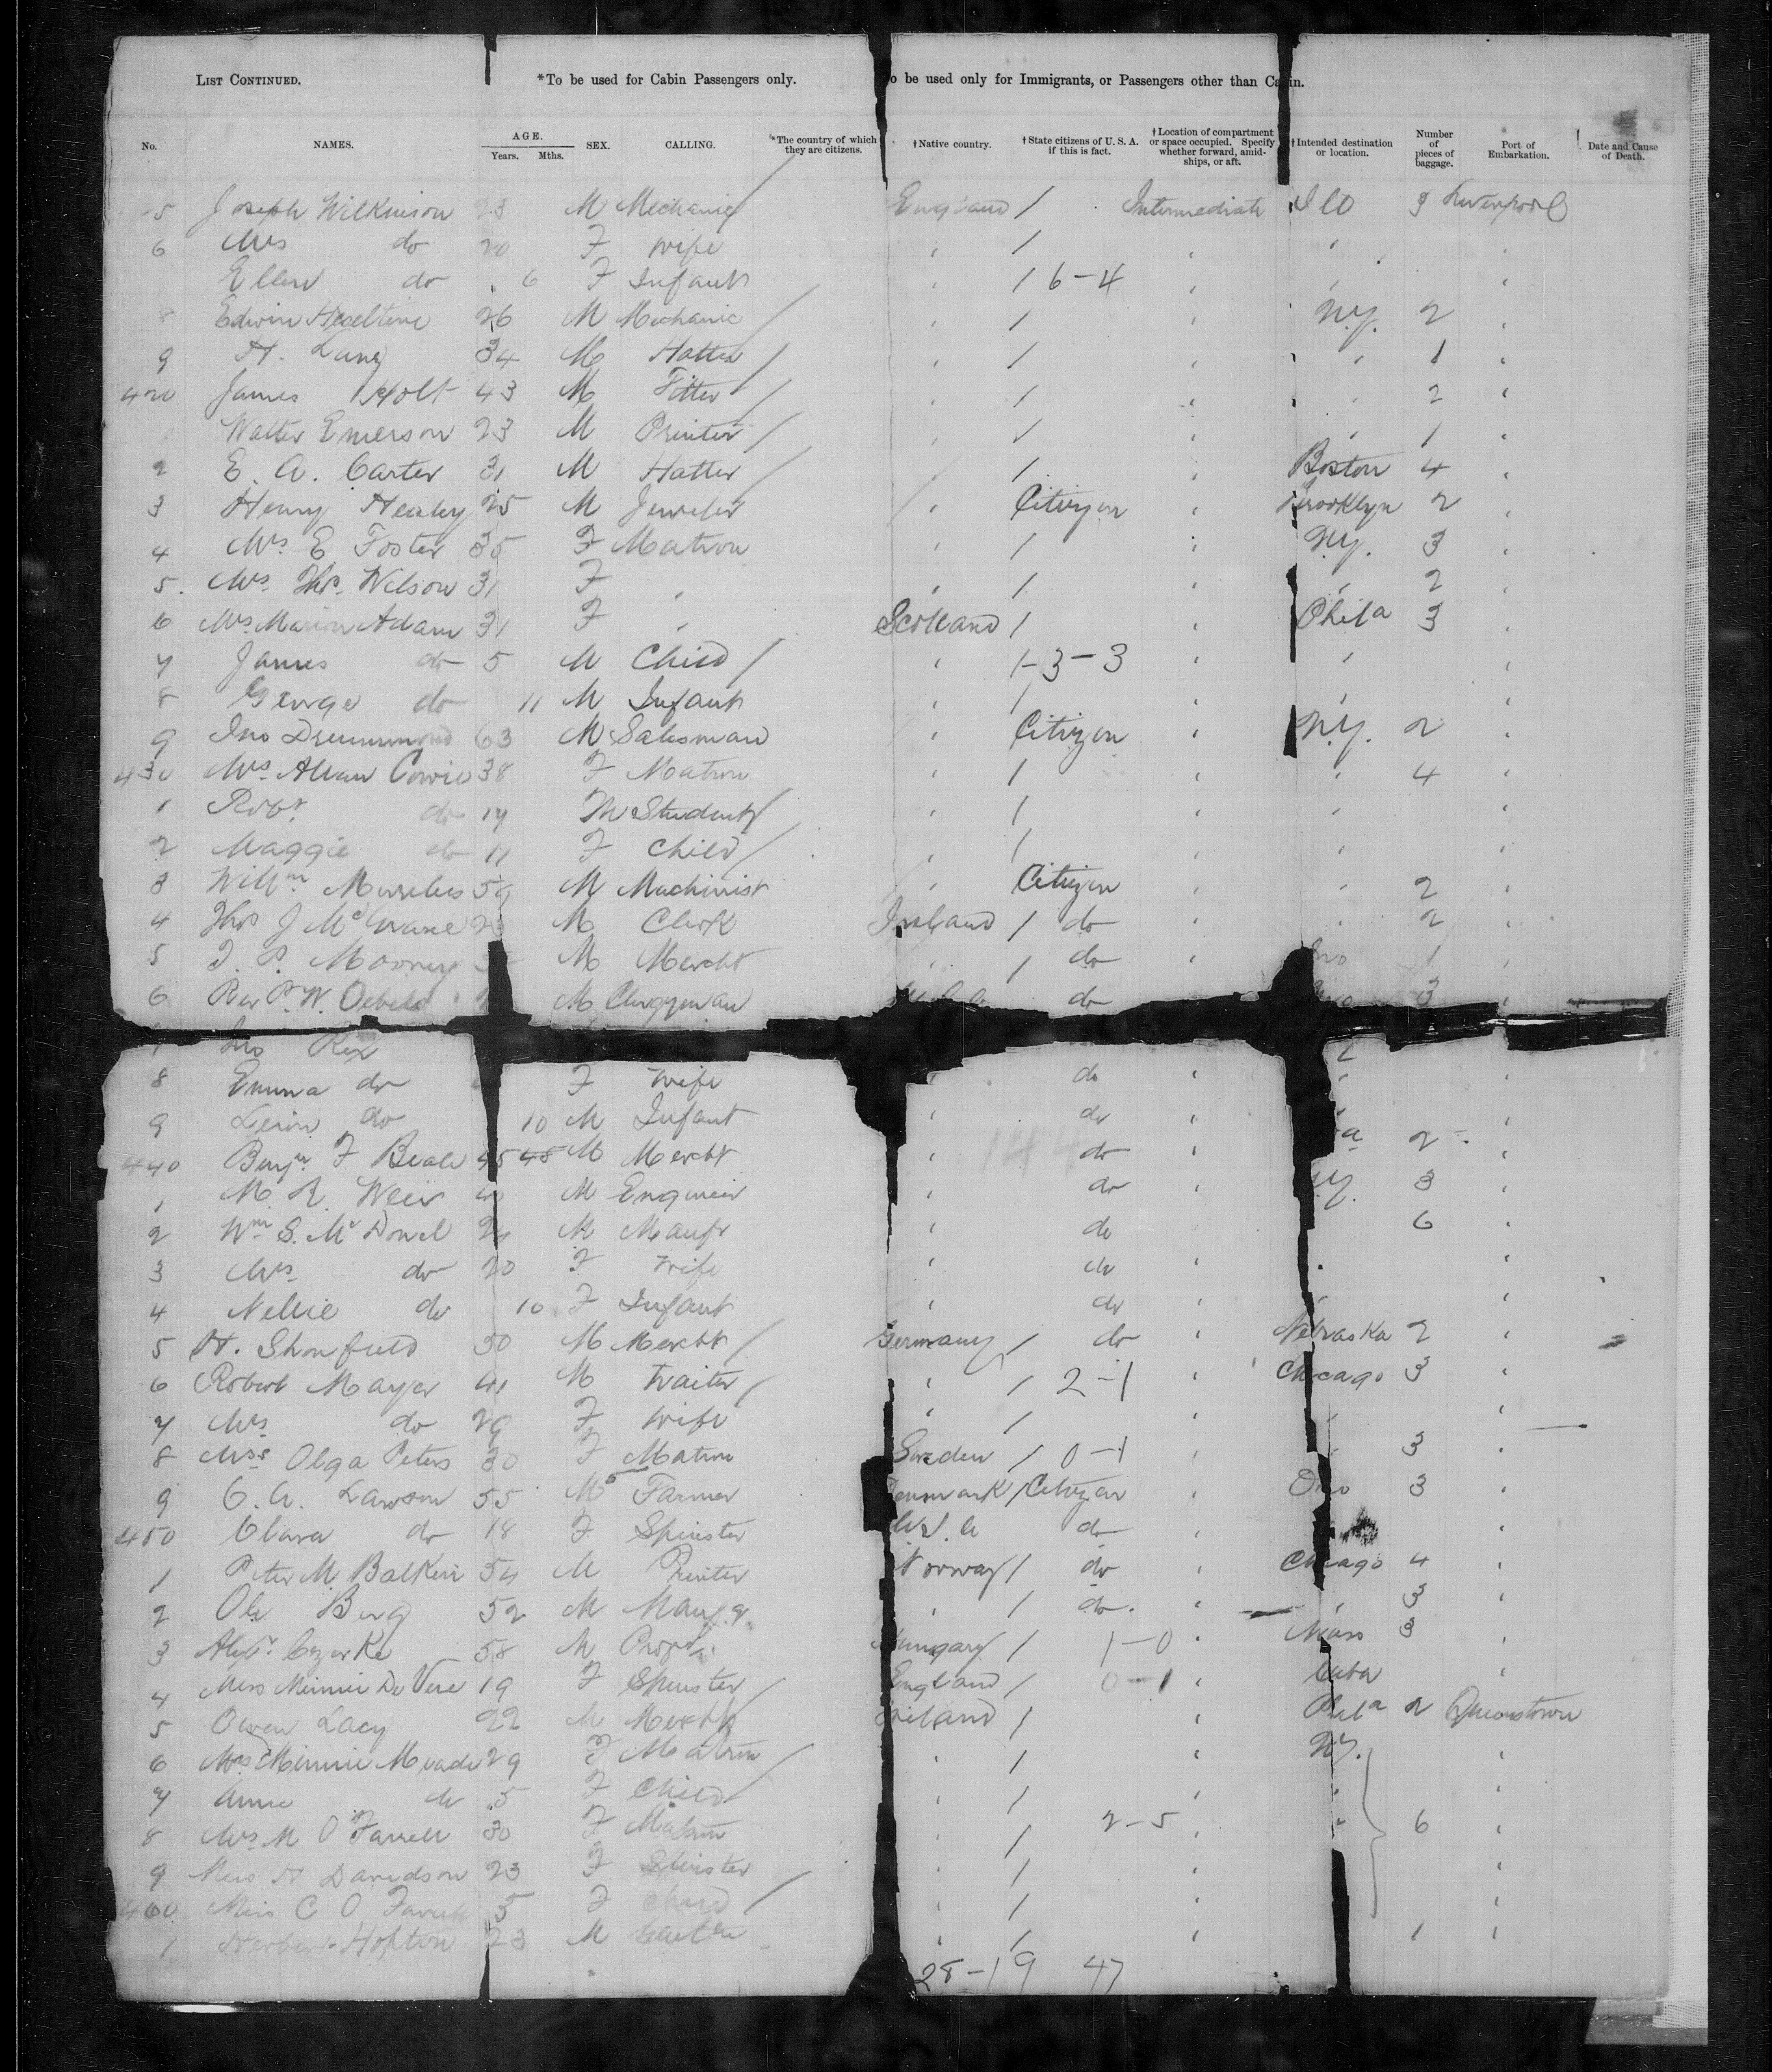 LIST CONTINUED. *To be used for Cabin Passengers only. o be used only for Immigrants, or Passengers other than Cabin.
No. NAMES. AGE. Years. Mths. SEX. CALLING. *The country of which they are citizens. †Native country. †State citizens of U. S. A. if this is fact. †Location of compartment or space occupied. Specify whether forward, amid-ships, or aft. †Intended destination or location. Number of pieces of baggage. Port of Embarkation. Date and Cause of Death.
5 Joseph Wilkinson 23 M Mechanic England / Intermediate Liverpool
6 Mrs do 20 F Wife " / " "
Ellen do 6 F Infant " / 6-4 " "
8 Edwin 26 M Mechanic " / " N.Y. 2 "
9 H. Lang 34 M Hatter " / " " 1 "
420 James Holt 43 M Fitter " / " " 2 "
Walter Emerson 23 M Printer " / " " 1 "
2 E. A. Carter 31 M Hatter " / " Boston 4 "
3 Henry 25 M Jeweler " Citizen " Brooklyn 2 "
4 Mrs E Foster 35 F Matron " / " N.Y. 3 "
5 Mrs Thos. Wilson 31 F " " / " " 2 "
6 Mrs Marion Adam 31 F " Scotland / " Phila 3 "
7 James do 5 M Child " / -3-3 " " "
8 George do 11 M Infant " / " " "
9 Jno Drummond 63 M Salesman " Citizen " N.Y. 2 "
430 Mrs Allan Cowie 38 F Matron " / " " 4 "
1 Robt do 17 M Student " / " " "
2 Maggie do 11 F Child " / " " "
3 Willm 59 M Machinist " Citizen " " 2 "
4 Thos J 23 M Clerk Ireland / do " " 2 "
5 Mooney M Mercht " / do " 1 "
6 Rev P. W. M Clergyman do " 3 "
Jno Rex
8 Emma do F Wife " do " " "
9 do 10 M Infant " do " " "
440 Benjn F Beale 45 45 M Mercht " do " a 2 "
1 M. R. Weir M Engineer " do " N.Y. 3 "
2 Wm S. Mc M Manfr " do 6 "
3 Mrs do 20 F Wife " do " "
4 Nellie do 10 F Infant " do " " "
5 H. Shonfield 30 M Mercht Germany / do " Nebraska 2 "
6 Robert Mayer 41 M Waiter " / 2-1 " Chicago 3 "
7 Mrs do 29 F Wife " / " "
8 Olga Peters 30 F Matron Sweden / 0-1 " " 3 "
9 C. A. Lawson 55 M Farmer Denmark / Citizen " 3 "
450 Clara do 18 F Spinster U.S.A do " "
1 Peter M Balken 54 M Printer Norway / do " Chicago 4 "
2 Ole Berg 52 M " / do. " 3 "
3 58 M Hungary / 1-0 " Mass 3 "
4 Miss Minnie De Vere 19 F Spinster England / 0-1 " Cuba "
5 Owen Lacy 22 M Mercht Ireland / " Phila 2 Queenstown
6 Mrs Minnie Meade 29 F Matron " / " N.Y. "
7 Annie do 5 F Child " / " "
8 Mrs M O'Farrell 30 F Matron " / 2-5 " " 6 "
9 Miss H Davidson 23 F Spinster " / " "
460 Miss C O Farrell 5 F Child / " "
1 Herbert Hopton 23 M " / " 1 "
28-19 47